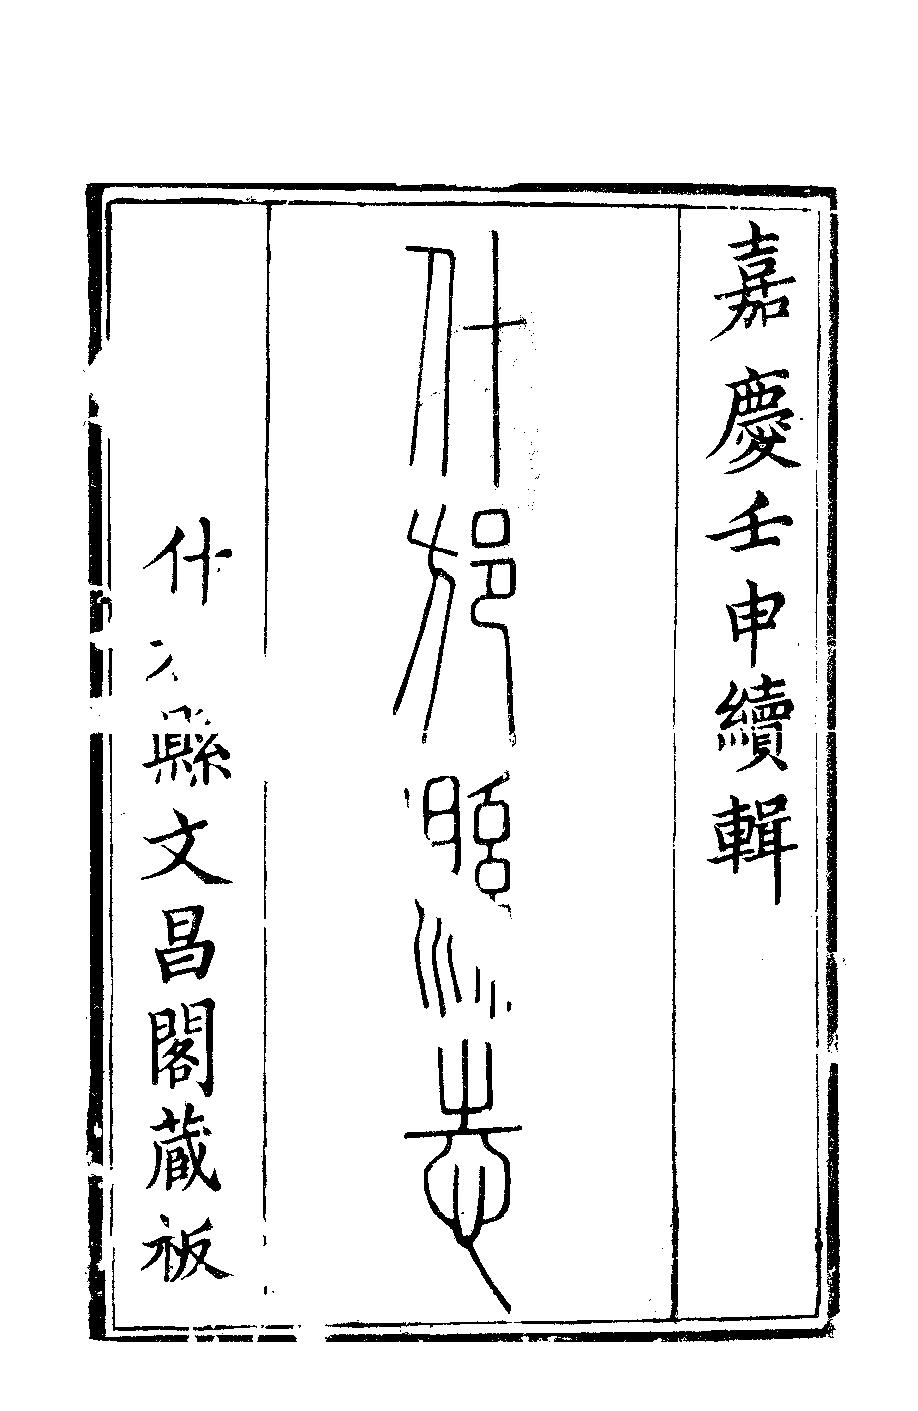 嘉慶壬申續輯
什邡縣志
什縣文昌閣藏板